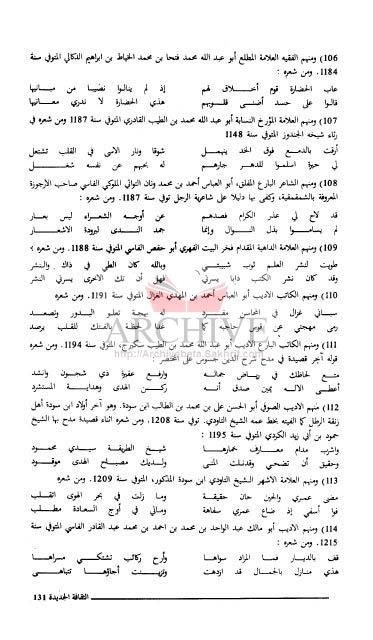 106) ومنهم الفقيه العلامة المطلع أبو عبد الله محمد فتحا بن محمد الخياط بن ابراهيم الدكالي المتوفى سنة
1184. ومن شعره :
عاب الحضارة قوم أخلاق لهم إذ لم ينالوا نصيبا من مبانيها
قالوا على حسد أضنى قلوبهم هذي الحضارة لا ندري معانيها
107) ومنهم العلامة المؤرخ النسابة أبو عبد الله محمد بن الطيب القادري المتوفى سنة 1187 ومن شعره في
رثاء شيخه الجندوز المتوفى سنة 1148
أرقت بالدمع فوق الخد ينهمل شوقا ونار الاسى في القلب تشتعل
لي حيرة اسلموا للدهر جارهم له بحبهم عن نفسه شغل
108) ومنهم الشاعر البارع المفلق، أبو العباس أحمد بن محمد ونان التواتي الملوكي الفاسي صاحب الارجوزة
المعروفة بالشمقمقية، وكفى بها دليلا على شاعرية الرجل توفي سنة 1187. ومن شعره :
قد لاح لي عذر الكرام فصدهم عن أوجه الشعراء ليس بعار
لم يساموا بذل النوال وإنما جمد الندى لبرودة الاشعار
109) ومنهم العلامة الداهية المقدام فخر البيت الفهري أبو حفص الفاسي المتوفى سنة 1188. ومن شعره :
طويت لنشر العلم ثوب شبيبتي وبالله كان الطي في ذاك والنشر
وقد كان نشر الكتب دابا يسرني فهل أن تلك الاخرى يسرني النشر
110) ومنهم الكاتب الاديب أبو العباس أحمد بن المهدي الغزال المتوفى سنة 1191. ومن شعره
سباني غزال في المحاسن مفرد له بهجة تعلو البدور وتصعد
رمى مهجتي عن قوس حاجبه كما غدا لحظه بالفتك للقلب يرصد
111) ومنهم الكاتب البارع الاديب أبو عبد الله محمد بن الطيب سكيرج، المتوفى سنة 1194. ومن شعره
قوله آخر قصيدة في مدح شرح الدين جسوس على المختصر
متع لحاظك في رياض جماله وارفع عقيرة ذي شجون وانشد
أعطى الاله يمين صدق أنه ركن الهدى وهداية المسترشد
112) منهم الاديب الصوفي أبو الحسن علي بن محمد بن الطالب ابن سودة. وهو آخر أولاد ابن سودة أهل
زنقة الرطل كما الفيته بخط عمه الشيخ التاودي. توفي سنة 1208. ومن شعره اثناء قصيدة مدح بها الشيخ
حمود بن أبي زيد الكردي المتوفى سنة 1195 :
واشرب مدام معارف خمارها شيخ الطريقة سيدي محمود
وحقيق أن تضحي وقدلت المنى ولديك مصباح الهدى موقود
113) ومنهم العلامة الاشهر الشيخ التاودي ابن سودة المذكور، المتوفى سنة 1209. ومن شعره
مضى عمري والحين حان حقيقة وما زلت في بحر الهوى اتقلب
فوا أسفي إذ ضاع عمري سفاهة ومالي في أوج السعادة مطلب
114) ومنهم الاديب أبو مالك عبد الواحد بن محمد بن احمد بن محمد عبد القادر الفاسي المتوفى سنة
1215. ومن شعره :
قف بالديار فما المراد سواها وأرح ركائب تشتكي مسراها
هذي منازل بالجمال قد ازدهت وتزينت أجاؤها تتباهى
الثقافة الجديدة 131
ARCHIVE
http://Archivebeta.Sakhrit.com